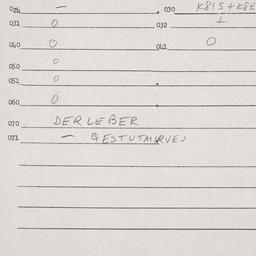 024 — 030 K81S+K8E
031 0 032 +
040 0 041 0
050 0
051 0
060 0
070 DER LEBER
071 —